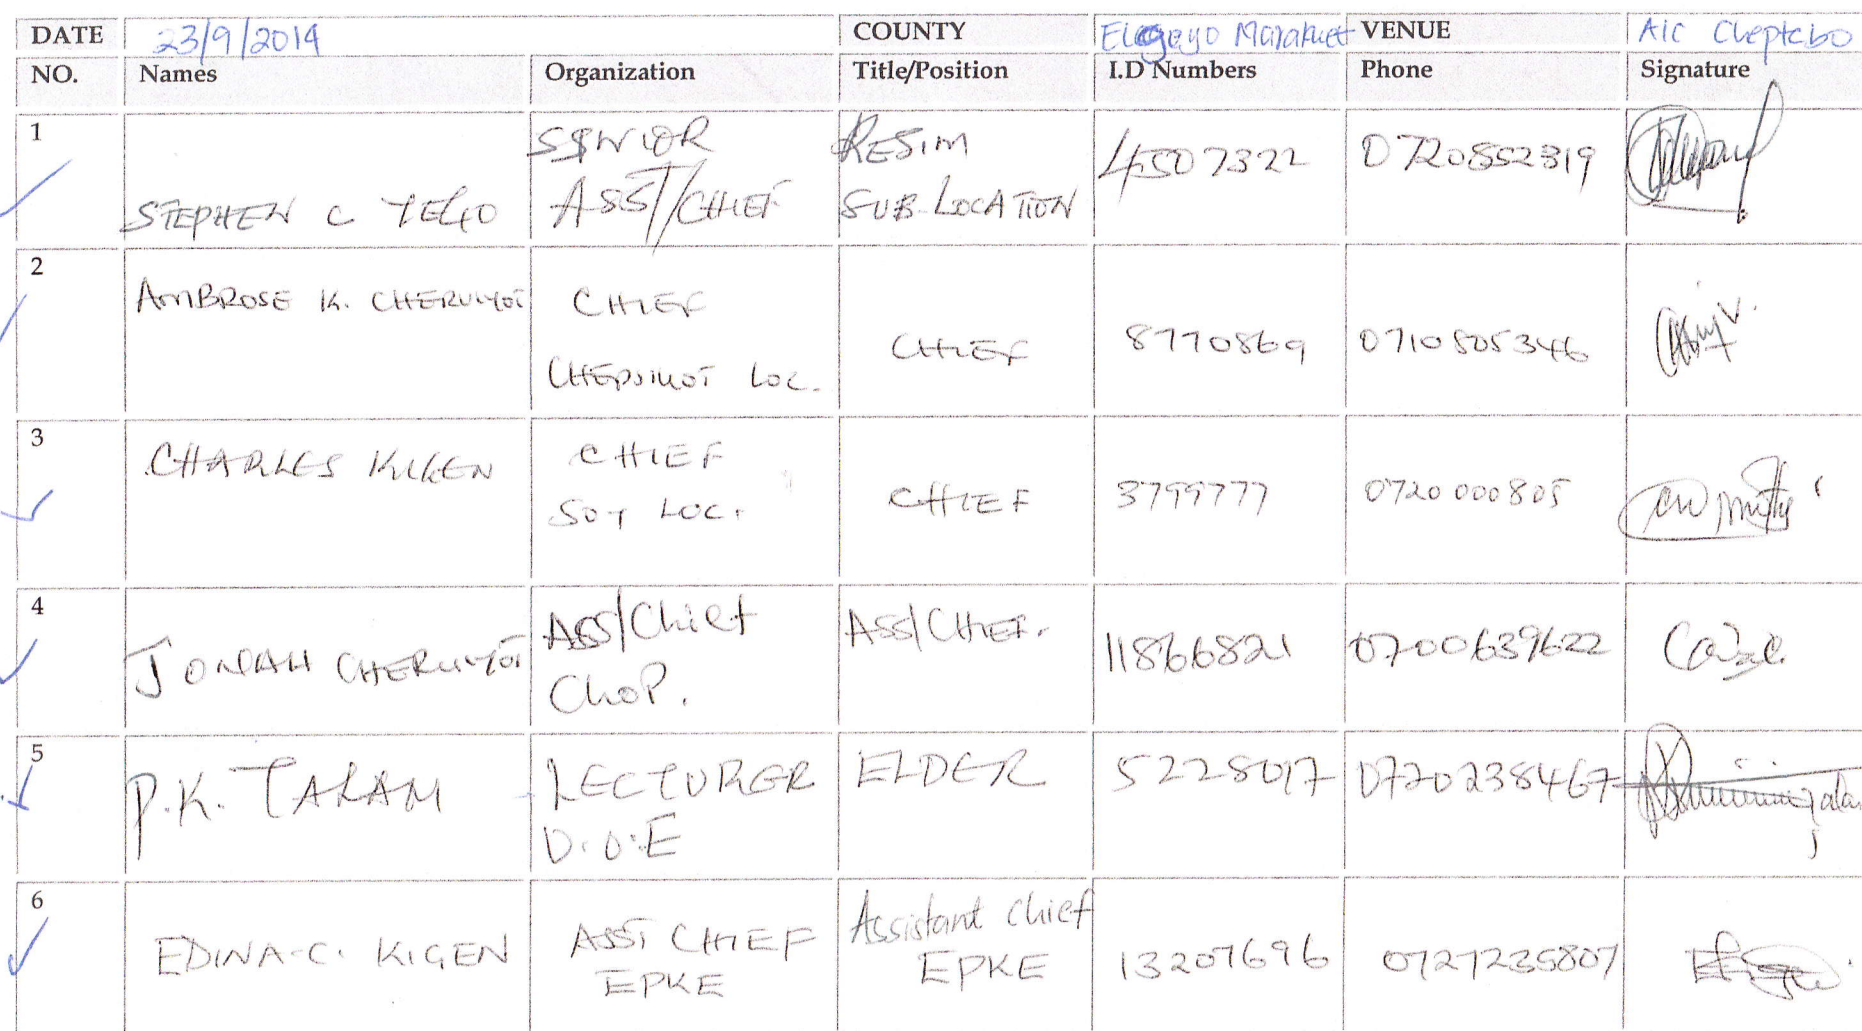 DATE 23/9/2014 COUNTY Elegeyo Marakwet VENUE AIC Cheptebo
NO. Names Organization Title/Position I.D Numbers Phone Signature
1 STEPHEN C TEGO SENIOR ASST/CHIEF RESIM SUB-LOCATION 4507322 0720852319
2 AMBROSE K. CHERUIYOT CHIEF LOC. CHIEF 8770869 0710805346
3 CHARLES KIGEN CHIEF SOY LOC. CHIEF 3799777 0720000805
4 JONAH CHERUIYOT ASS/Chief ChoP. ASS/CHIEF. 11866821 0700639622
5 P.K. TALAM LECTURER D.O.E ELDER 5228017 0720238467
6 EDINA.C. KIGEN ASST CHIEF EPKE Assistant chief EPKE 13207696 0727235807